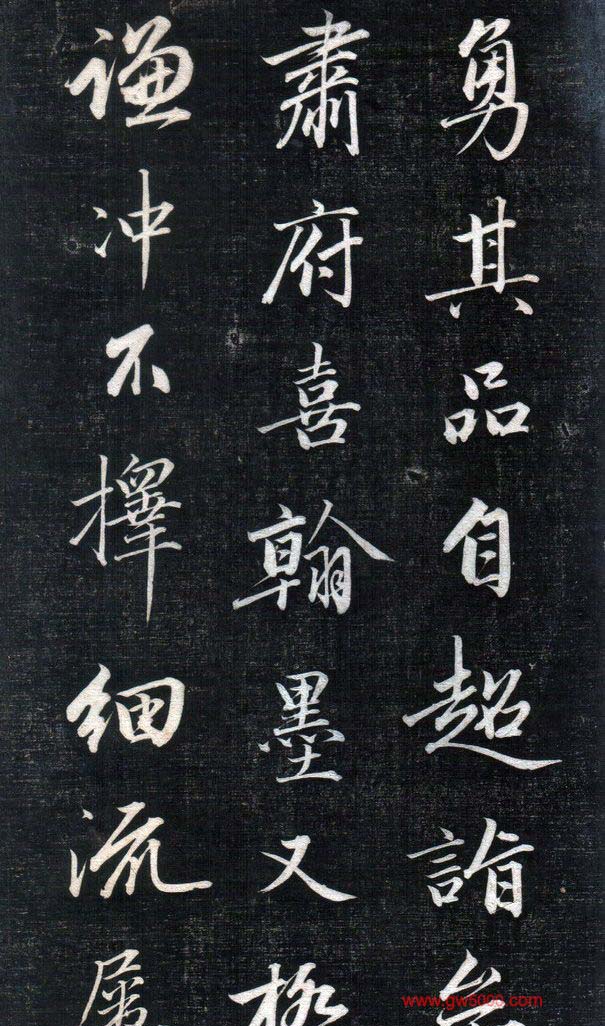 勇其品自超詣
肅府喜翰墨又極
謙冲不擇細流屬
www.gw6000.com